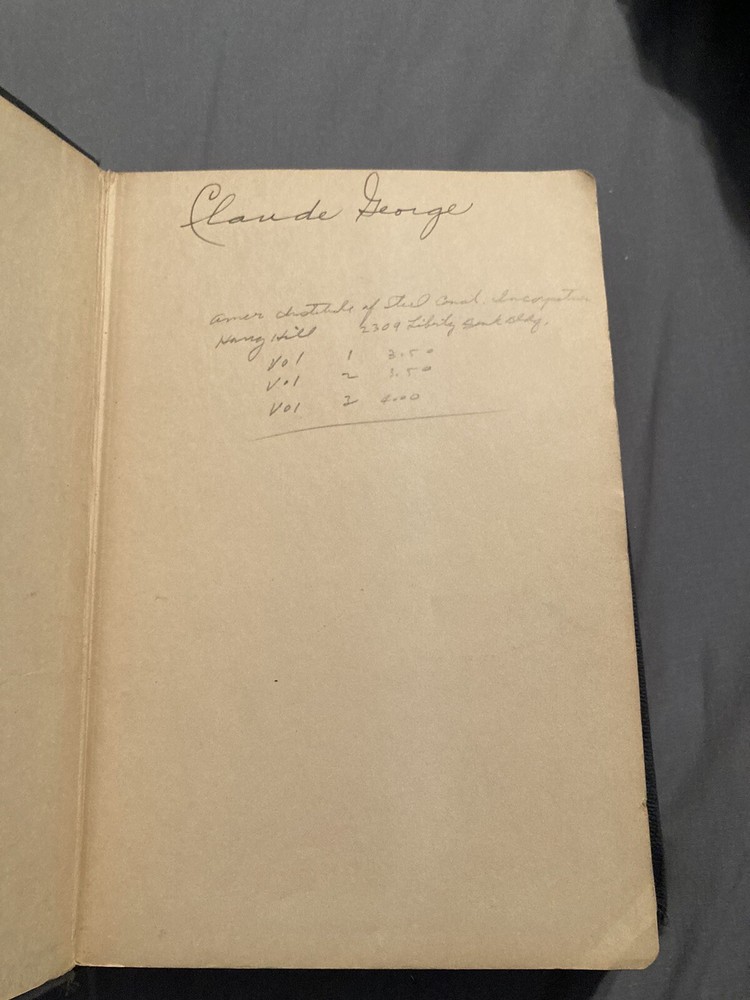 Claude George
Amer Institute of Steel Const. Incorporation
Harry Hill 2309 Liberty Bank Bldg.
Vol 1 3.50
Vol 2 1.50
Vol 3 4.00